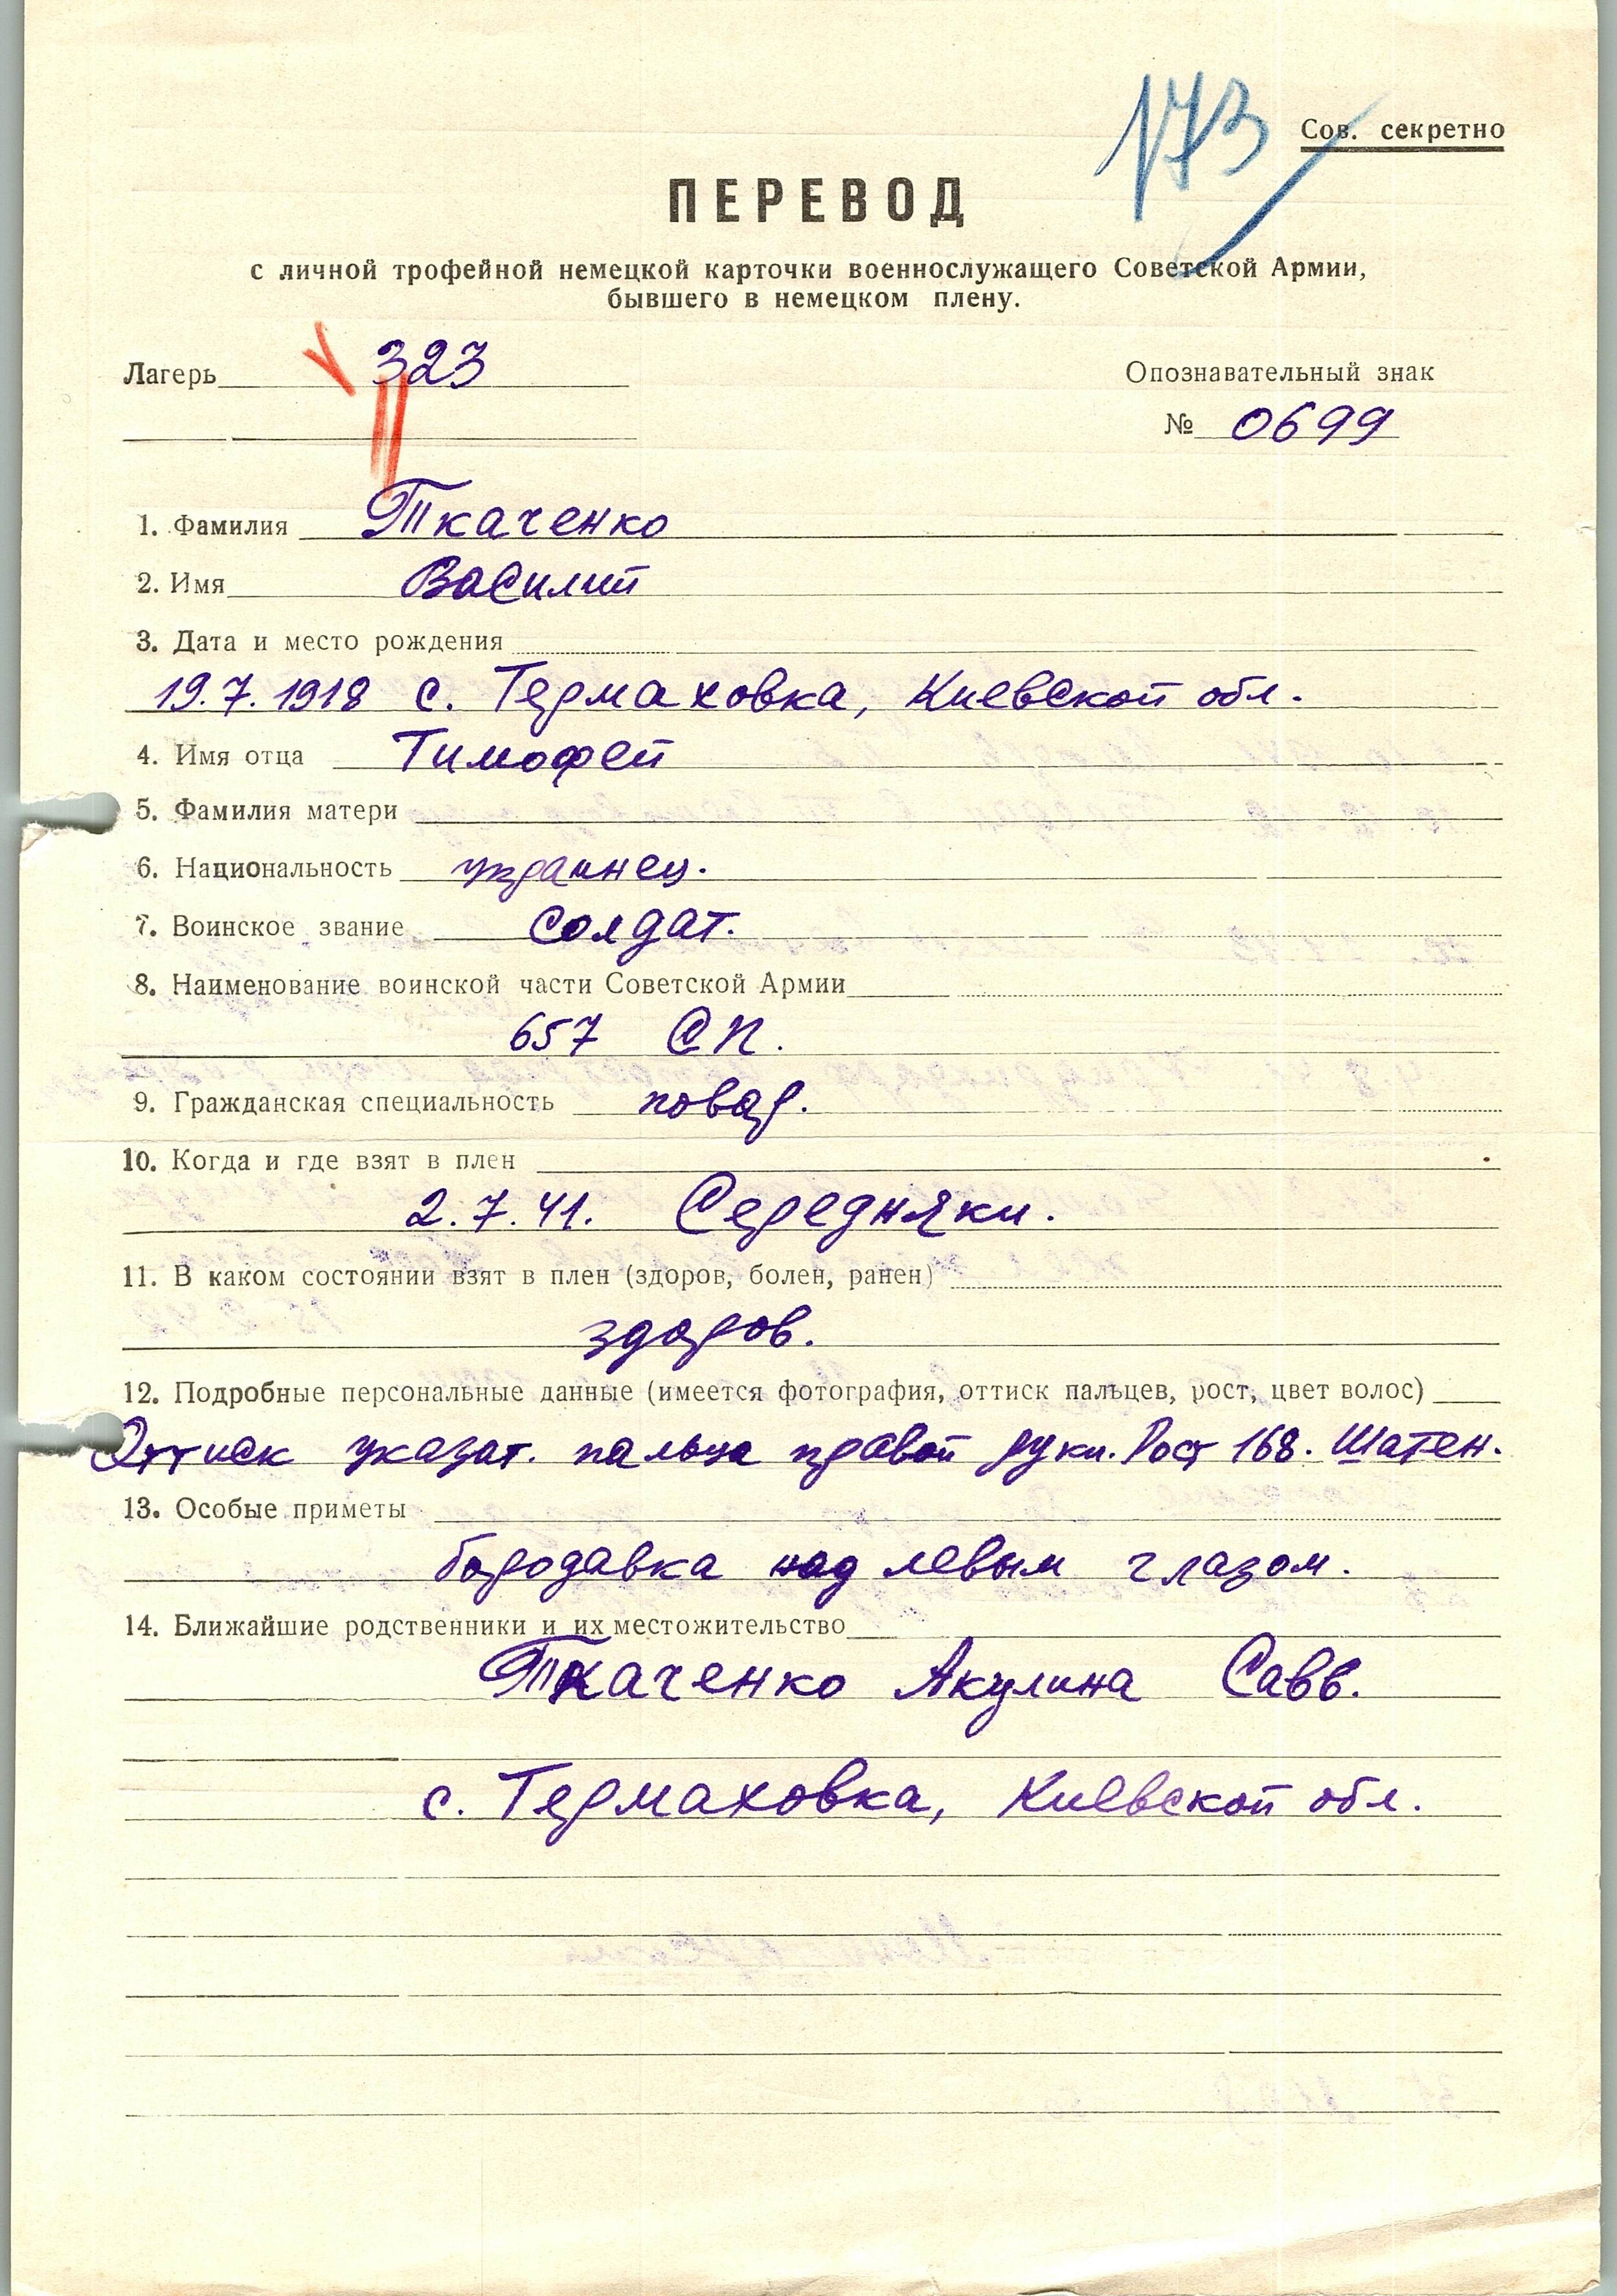 173
Сов. секретно
ПЕРЕВОД
с личной трофейной немецкой карточки военнослужащего Советской Армии,
бывшего в немецком плену.
Лагерь 323
Опознавательный знак
№ 0699
1. Фамилия Ткаченко
2. Имя Василий
3. Дата и место рождения
19.7.1918 с. Термаховка, Киевской обл.
4. Имя отца Тимофей
5. Фамилия матери
6. Национальность украинец.
7. Воинское звание солдат.
8. Наименование воинской части Советской Армии
657 СП.
9. Гражданская специальность повар.
10. Когда и где взят в плен
2.7.41. Середняки.
11. В каком состоянии взят в плен (здоров, болен, ранен)
здоров.
12. Подробные персональные данные (имеется фотография, оттиск пальцев, рост, цвет волос)
Оттиск указат. пальца правой руки. Рост 168. Шатен.
13. Особые приметы
бородавка над левым глазом.
14. Ближайшие родственники и их местожительство
Ткаченко Акулина Савв.
с. Термаховка, Киевской обл.